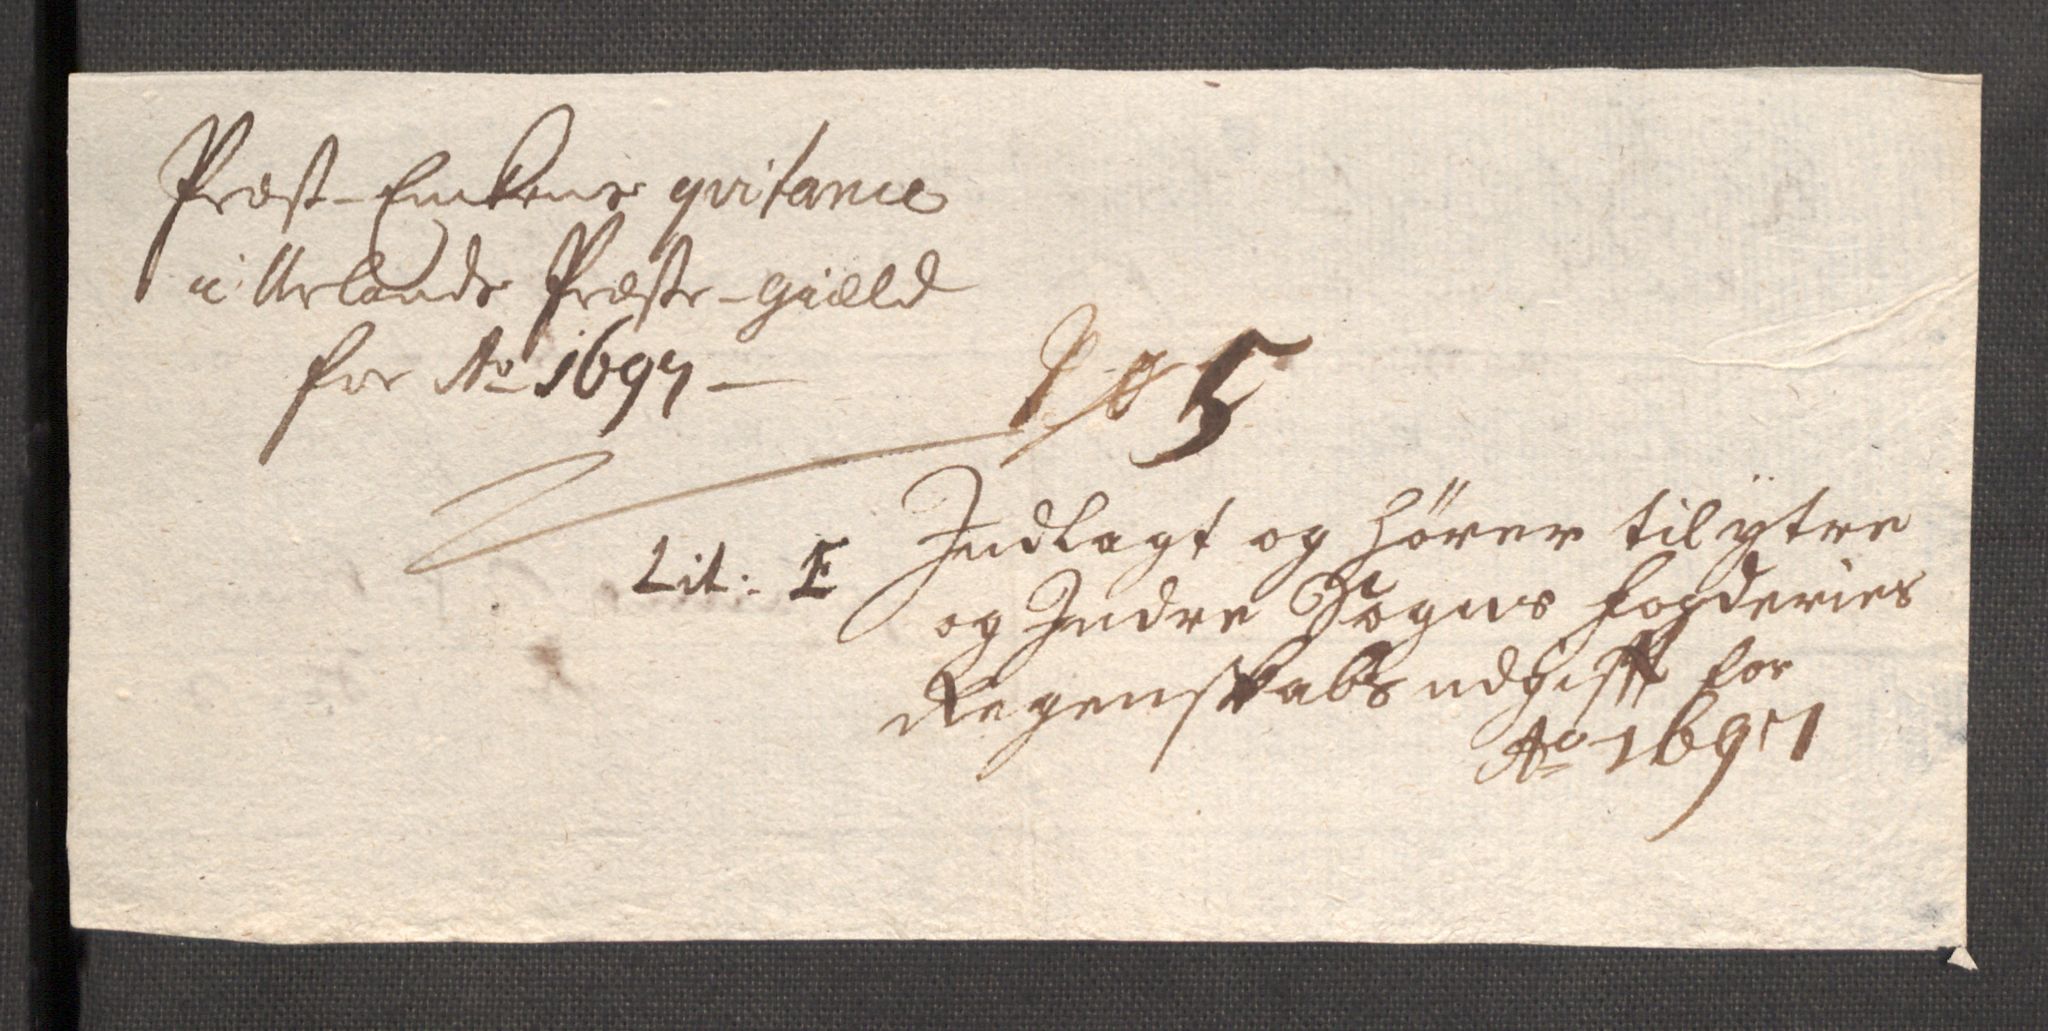 Præst-Enckens qvitance
i Urlands Præste-gield
for Ao 1697 —
No 5
Lit: E
Indlagt og hörer til ÿtre
og Indre Sogns fogderies
Regenskabs udgifft for
Ao 1697